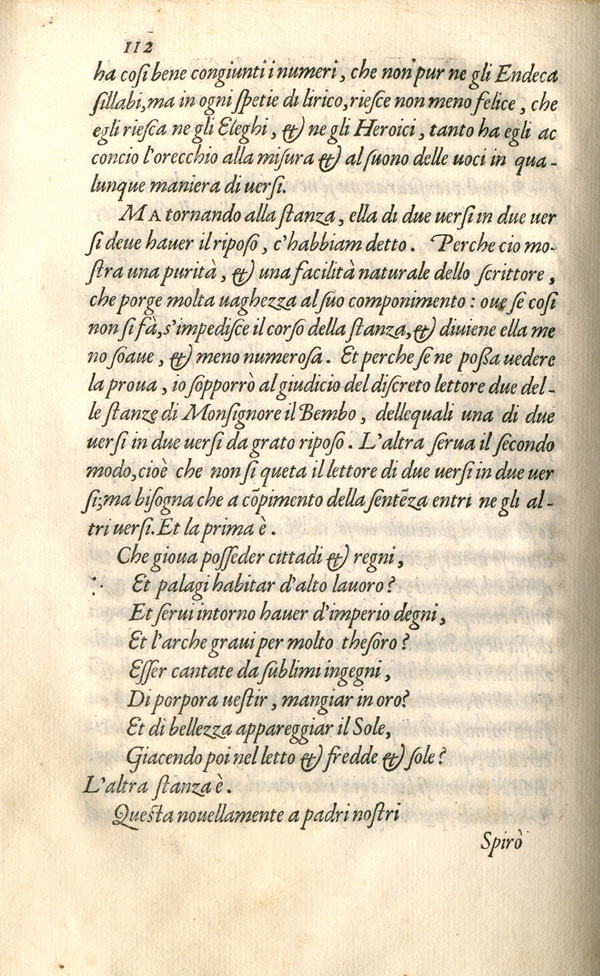 112
ha cosi bene congiunti i numeri, che non pur ne gli Endeca
sillabi, ma in ogni spetie di lirico, riesce non meno felice, che
egli riesca ne gli Eleghi, & ne gli Heroici, tanto ha egli ac
concio l'orecchio alla misura & al suono delle uoci in qua-
lunque maniera di uersi.
MA tornando alla stanza, ella di due uersi in due uer
si deue hauer il riposo, c'habbiam detto. Perche cio mo-
stra una purità, & una facilità naturale dello scrittore,
che porge molta uaghezza al suo componimento: oue se cosi
non si fà, s'impedisce il corso della stanza, & diuiene ella me
no soaue, & meno numerosa. Et perche se ne possa uedere
la proua, io sopporrò al giudicio del discreto lettore due del-
le stanze di Monsignore il Bembo, dellequali una di due
uersi in due uersi da grato riposo. L'altra serua il secondo
modo, cioè che non si queta il lettore di due uersi in due uer
si; ma bisogna che a cōpimento della sentēza entri ne gli al-
tri uersi. Et la prima è.
Che gioua posseder cittadi & regni,
Et palagi habitar d'alto lauoro?
Et serui intorno hauer d'imperio degni,
Et l'arche graui per molto thesoro?
Esser cantate da sublimi ingegni,
Di porpora uestir, mangiar in oro?
Et di bellezza appareggiar il Sole,
Giacendo poi nel letto & fredde & sole?
L'altra stanza è.
Questa nouellamente a padri nostri
Spirò